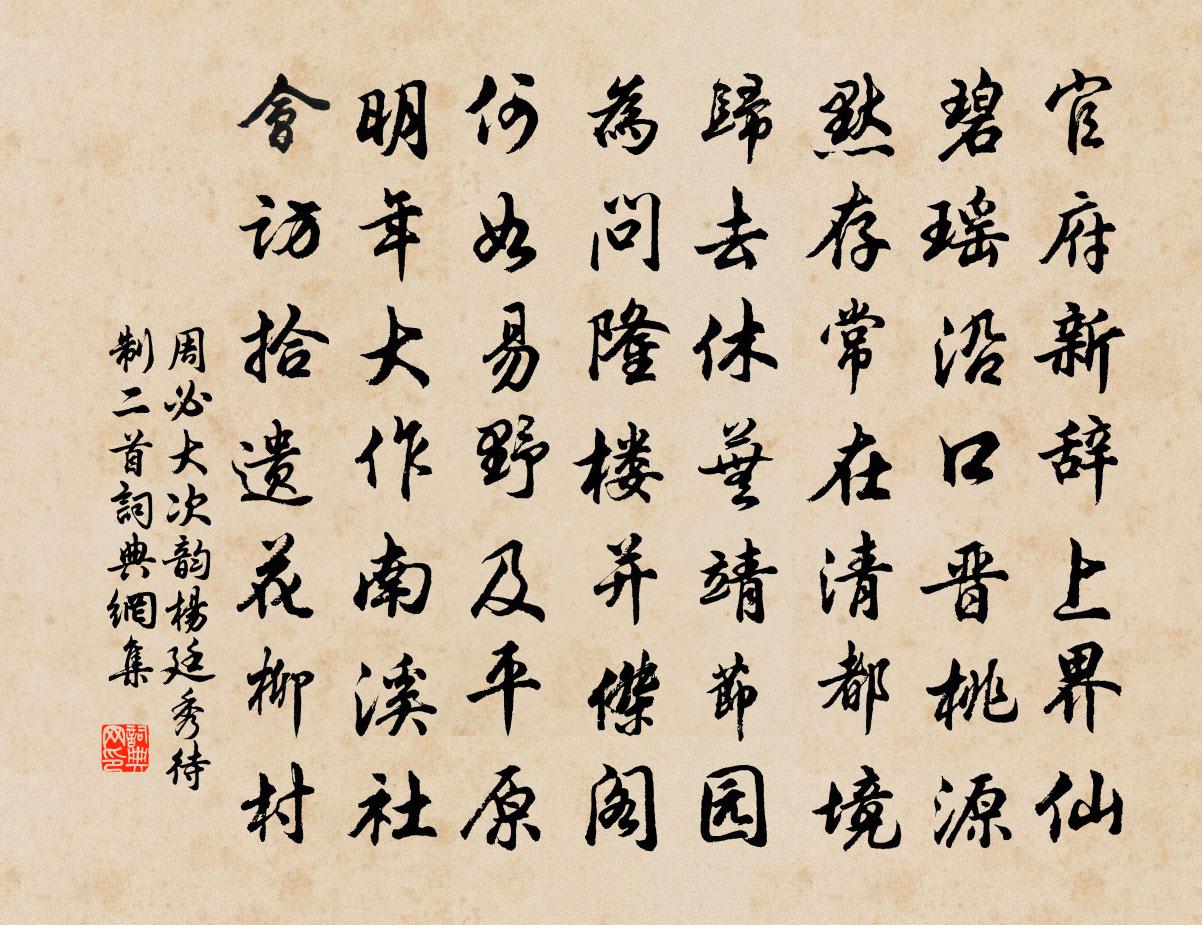 官府新辞上界仙
碧瑶沿口晋桃源
黙存常在清都境
歸去休蕪靖節园
為问隆楼并傑阁
何如易野及平原
明年大作南溪社
會访拾遗花柳村
周必大次韵楊廷秀待
制二首詞典網集
詞典网印